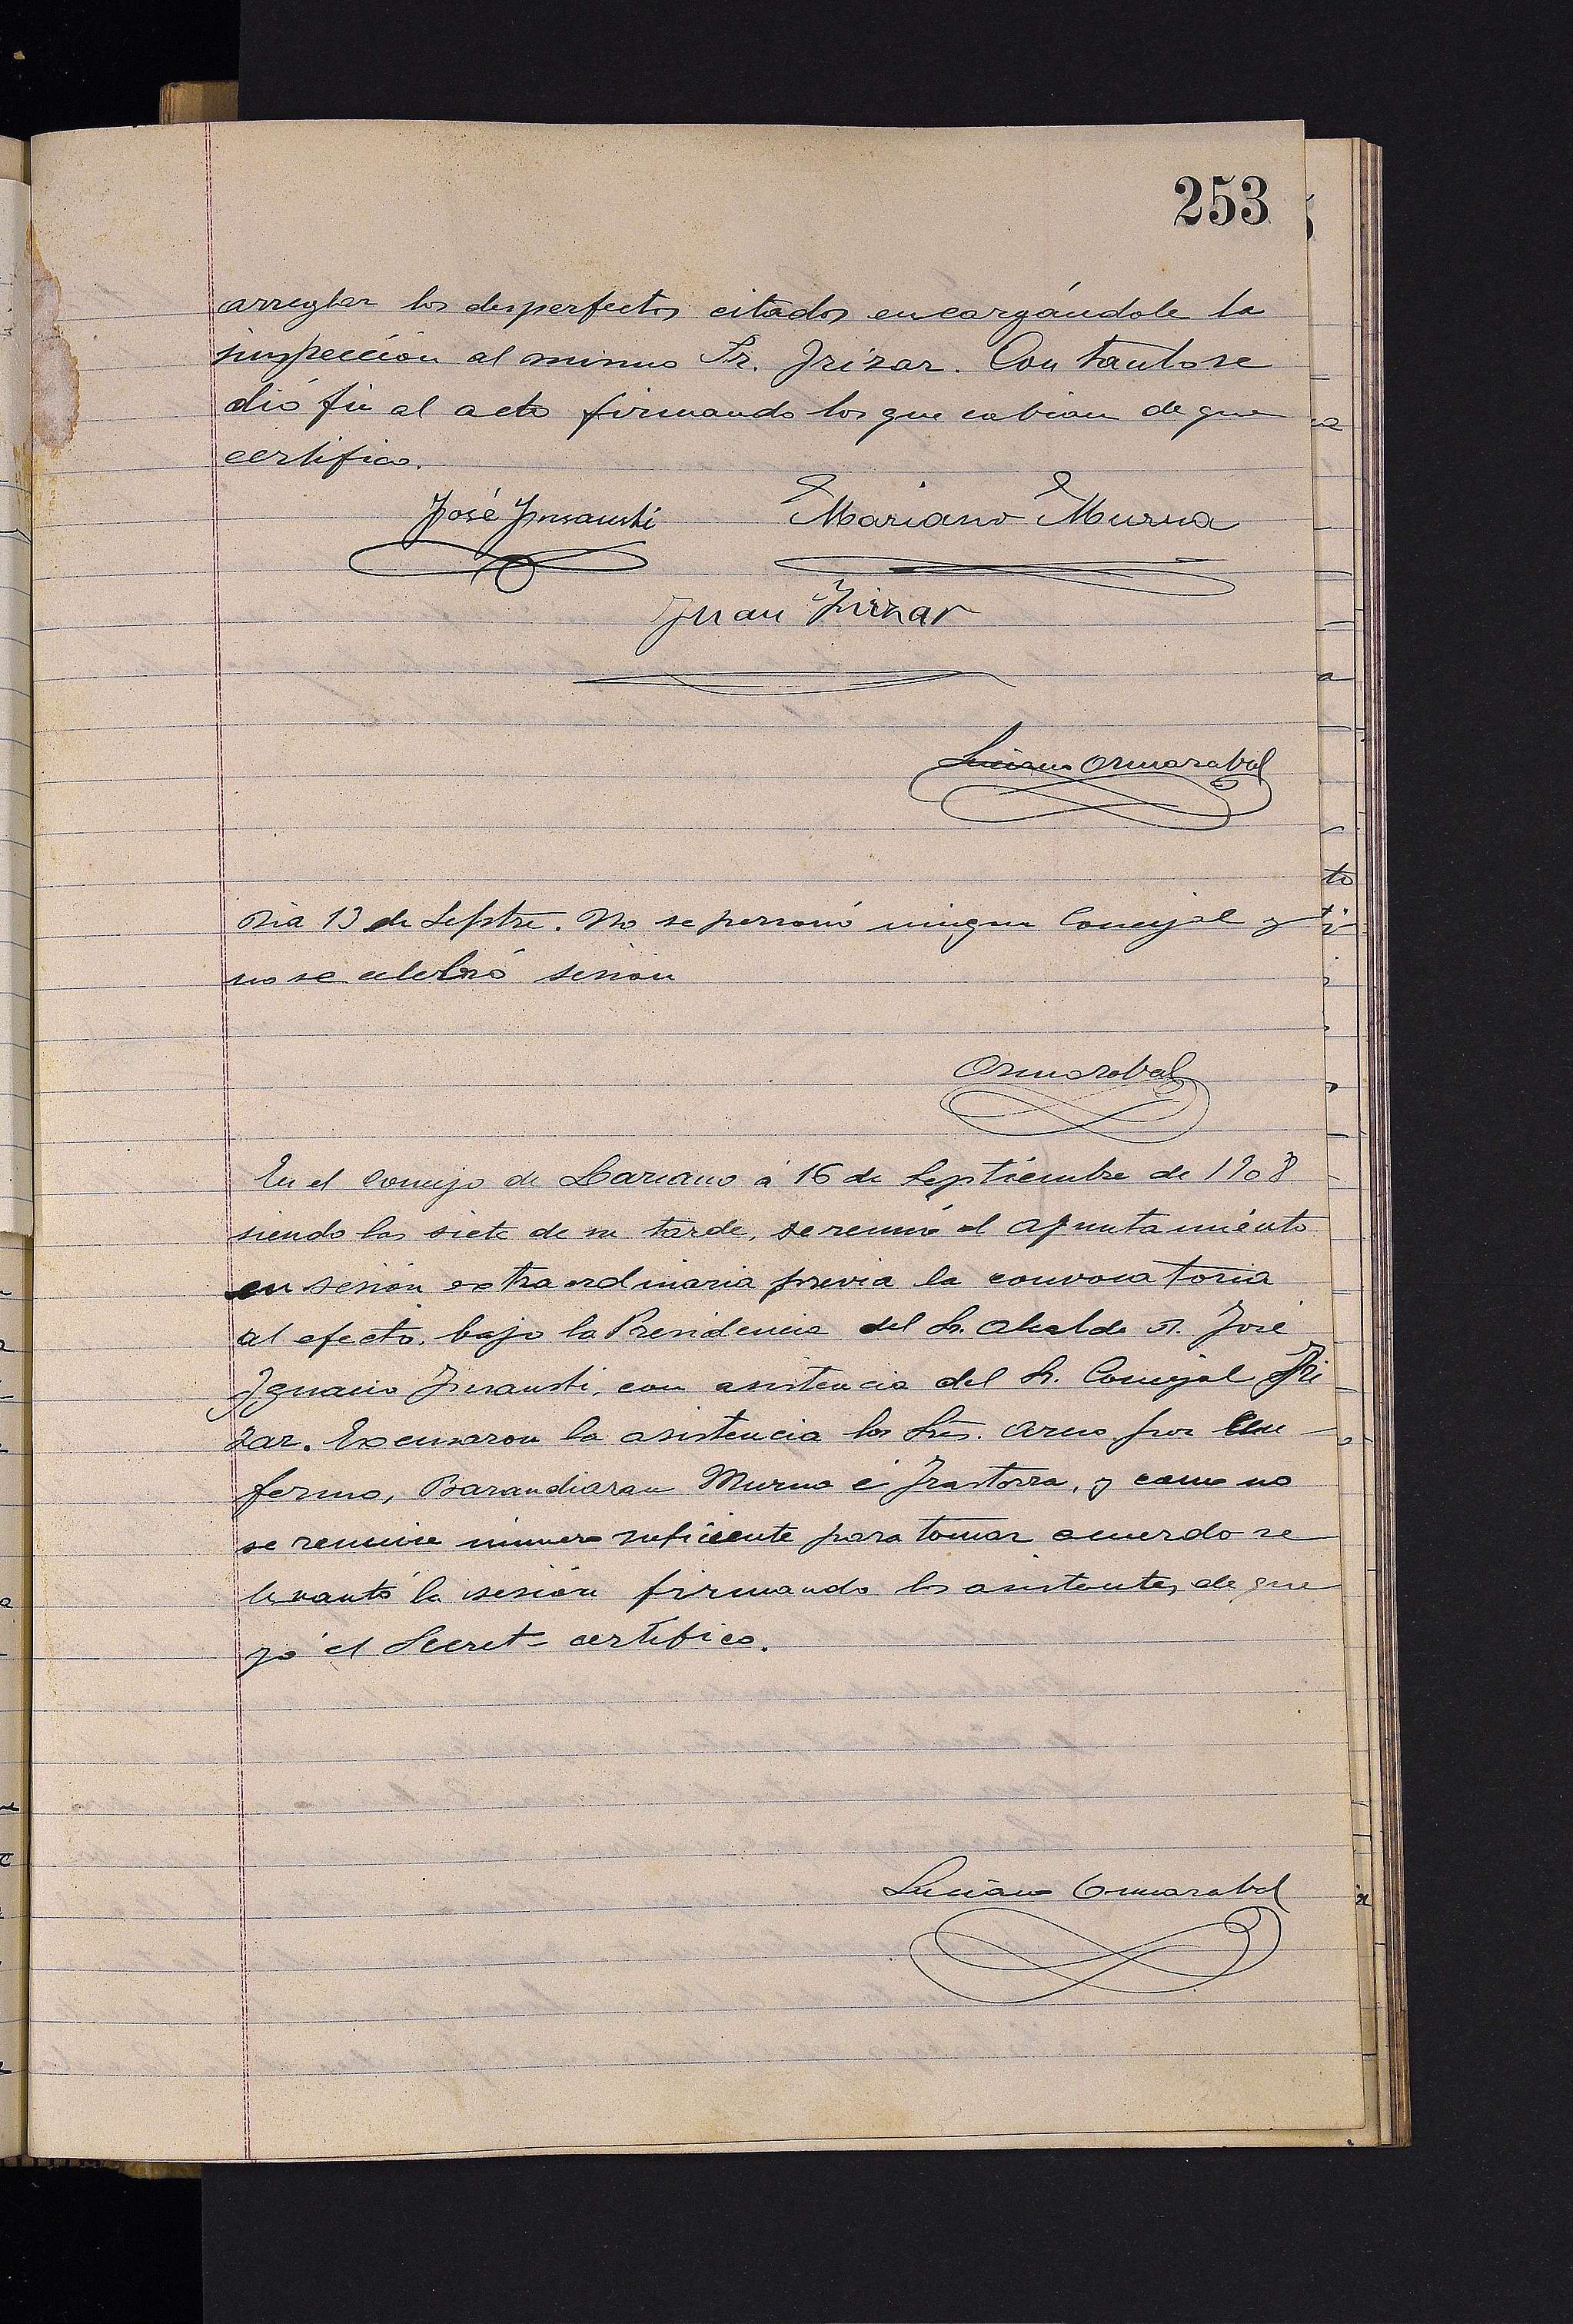 253
arreglar los desperfectos citados encargándole la
inspección al mismo Sr. Irizar. Con tanto se
dió fin al acto firmando los que cabian de que
certifico.
José Insausti Mariano Murua
Juan Irizar
Luciano Ormazabal
Dia 13 de Septre. No se personó ningun Concejal y
no se celebró sesion
Ormazabal
En el Concejo de Lazcano á 16 de Septiembre de 1908
siendo las siete de su tarde, se reunió el Ayuntamiento
en sesión extraordinaria previa la convocatoria
al efecto, bajo la Presidencia del Sr. Alcalde D. José
Ignacio Insausti, con asistencia del Sr. Concejal Iri
zar. Excusaron la asistencia los Sres. por en
fermo, Barandiaran Murua é Irastorza, y como no
se reunire número suficiente para tomar acuerdo se
levantó la sesión firmando los asistentes, de que
yó el Secret- certifico.
Luciano Ormazabal